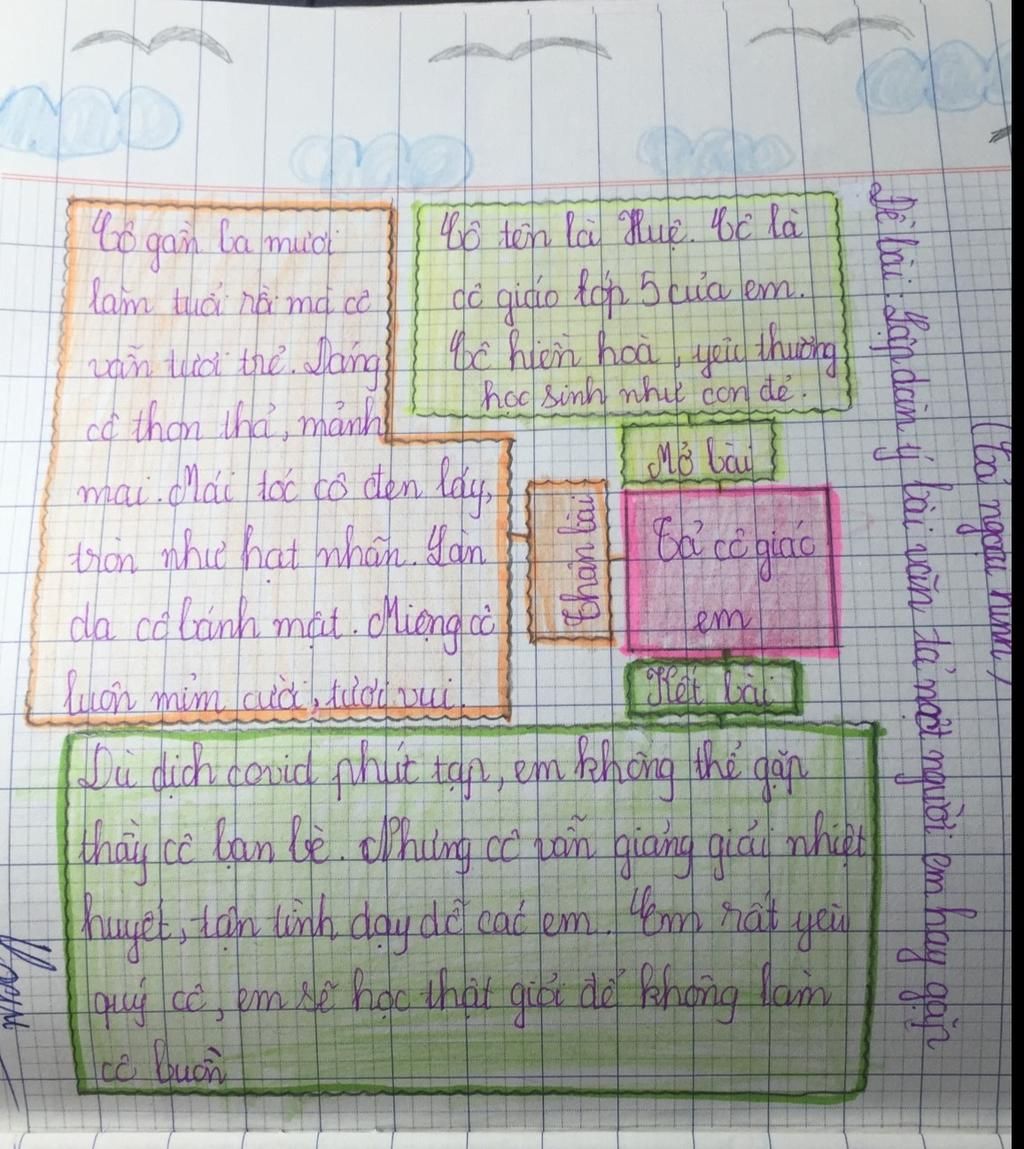 Đề bài: Lập dàn ý bài văn tả một người em hay gặp
(Tả ngoại hình)
Tả cô giáo
em
Mở bài
Cô tên là Huệ. Cô là
cô giáo lớp 5 của em.
Cô hiền hoà, yêu thương
học sinh như con đẻ.
Thân bài
Cô gần ba mươi
lăm tuổi rồi mà cô
vẫn tươi trẻ. Dáng
cô thon thả, mảnh
mai. Mái tóc cô đen láy,
tròn như hạt nhãn. Làn
da cô bánh mật. Miệng cô
luôn mỉm cười, tươi vui.
Kết bài
Dù dịch covid phứt tạp, em không thể gặp
thầy cô bạn bè. Nhưng cô vẫn giảng giải nhiệt
huyết, tận tình dạy dỗ các em. Em rất yêu
quý cô, em sẽ học thật giỏi để không làm
cô buồn